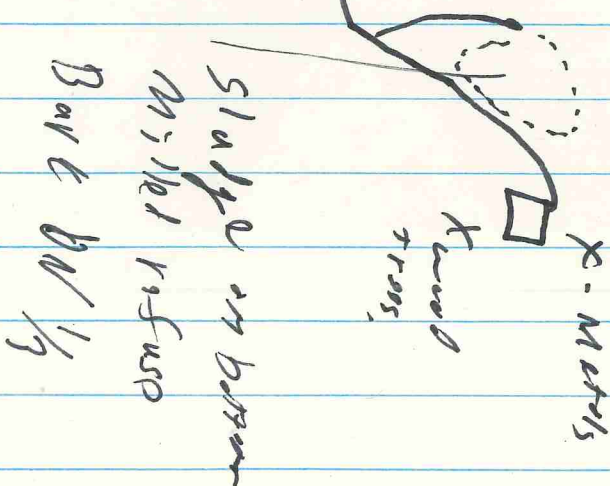 X - Metals
X wood
trees.
Sludge on bottom
Mixed refuse
Back W 1/3